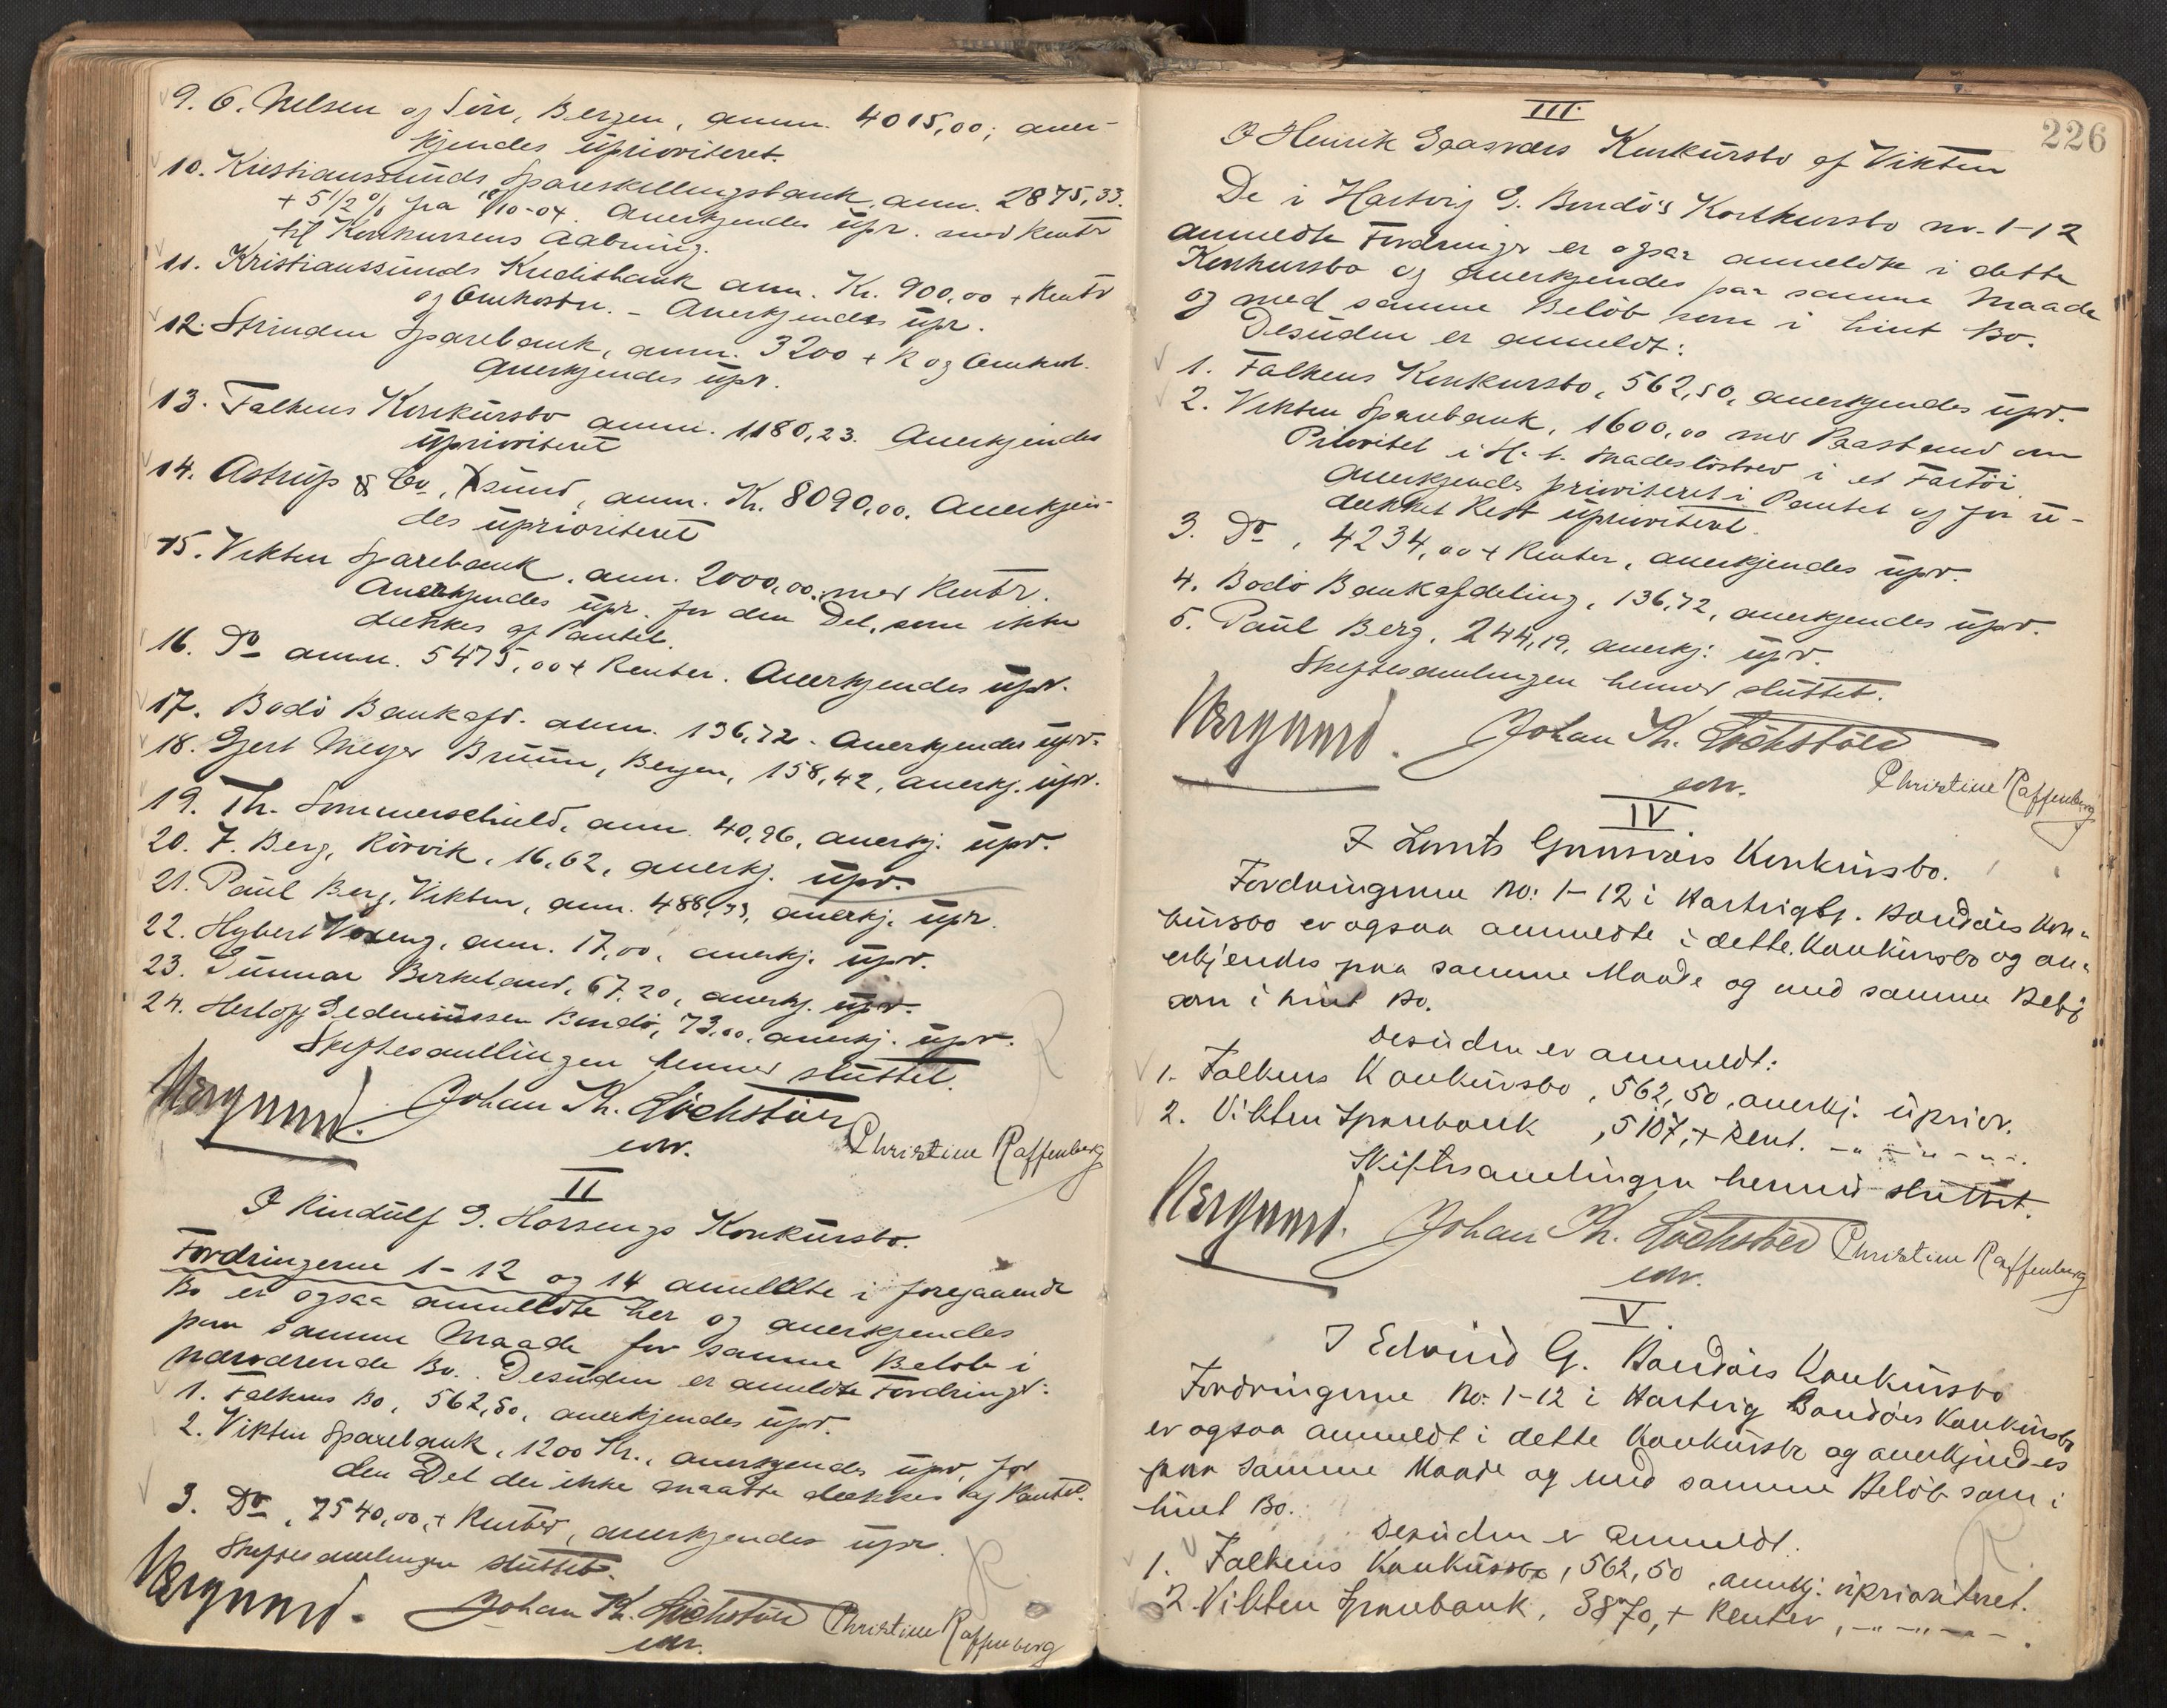 9. C. Nelsen og Sön, Bergen, anm. 4015,00; aner-
kjendes uprioriteret.
10. Kristianssunds Spareskillingsbank, anm. 2875,33.
+ 5 1/2 % fra 10-04. Anerkjendes upr. med Renter
til Konkursens Aabning.
11. Kristianssunds Kreditbank anm. Kr. 900,00 + Renter
og Omkostn. - Anerkjendes upr.
12. Strinden Sparebank, anm. 3200 + R og Omkost.
Anerkjendes upr.
13. Falkens Konkursbo anm. 1180,23. Anerkjendes
uprioriteret
14. Astrup & Co, Xsund, anm. Kr. 8090,00. Anerkjen-
des uprioriteret
15. Vikten Sparebank, anm. 2000,00, med Renter.
Anerkjendes upr. for den Del, som ikke
dækkes af Pantet.
16. Do anm. 5475,00 + Renter. Anerkjendes upr.
17. Bodö Bankafd. anm. 136,72. Anerkjendes upr.
18. Gert Meyer Bruun, Bergen, 158,42, anerkj. upr.
19. Th. Sommerschield, anm. 40,96, anerkj. upr.
20. F. Berg, Rörvik, 16,62, anerkj. upr.
21. Paul Berg, Vikten, anm. 488,33, anerkj. upr.
22. Hybert anm. 17,00, anerkj. upr.
23. Gunnar Birkeland, 67,20, anerkj. upr.
24. Herlof Pedersen Bondö, 73,00, anerkj. upr.
Skiftesamlingen hermed sluttet.
Johan Th. Löchstöer
edv.
Christine Raffenberg
II
I Rindulf G. Horsengs Konkursbo.
Fordringerne 1-12 og 14 anmeldte i foregaaende
Bo er ogsaa anmeldte her og anerkjendes
paa samme Maade for samme Belöb i
nærværende Bo. Desuden er anmeldte Fordringer:
1. Falkens Bo, 562,50, anerkjendes upr.
2. Vikten Sparebank, 1200 Kr., anerkjendes upr. for
den Del der ikke maatte dækkes af Pantet.
3. Do, 7540,00, + Renter, anerkjendes upr.
Skiftesamlingen sluttet.
Johan Th. Löchstöer
edv.
Christine Raffenberg
226
III.
I Henrik Gaasværs Konkursbo af Vikten
De i Hartvig G. Bondö's Konkursbo nr. 1-12
anmeldte Fordringer er ogsaa anmeldte i dette
Konkursbo og anerkjendes paa samme Maade
og med samme Belöb som i hint Bo.
Desuden er anmeldt:
1. Falkens Konkursbo, 562,50, anerkjendes upr.
2. Vikten Sparebank, 1600,00 med Paastand om
Prioritet i H. t. Skadeslösbrev i et Fartöi.
Anerkjendes prioriteret i Pantet og for u-
dækket Rest uprioriteret.
3. Do, 4234,00 + Renter, anerkjendes upr.
4. Bodö Bankafdeling, 136,72, anerkjendes upr.
5. Paul Berg, 244,19, anerkj: upr.
Skiftesamlingen hermed sluttet.
Johan Th. Löchstöer
edv.
Christine Raffenberg
IV
I Konkursbo.
Fordringerne No: 1-12 i Hartvig G. Bondöes Kon-
kursbo er ogsaa anmeldte i dette Konkursbo og an-
erkjendes paa samme Maade og med samme Belöb
som i hint Bo.
Desuden er anmeldt:
1. Falkens Konkursbo, 562,50, anerkj. uprior.
2. Vikten Sparebank, 5107, + Rent. -"-"-"-.
Skiftesamlingen hermed sluttet.
Johan Th. Löchstöer
edv.
Christine Raffenberg
V.
I Edvind G. Bondöes Konkursbo
Fordringerne No: 1-12 i Hartvig Bondöes Konkursbo
er ogsaa anmeldt i dette Konkursbo og anerkjendes
paa samme Maade og med samme Belöb som i
hint Bo.
Desuden er anmeldt:
1. Falkens Konkursbo, 562,50, anerkj: uprioriteret.
2. Vikten Sparebank, 3870, + Renter, -"-"-"-.